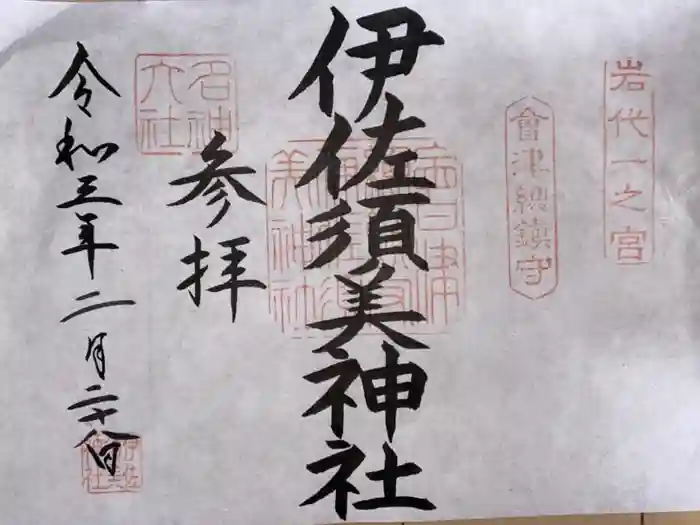 岩代一之宮
會津総鎮守
伊佐須美神社
参拝
名神大社
令和三年二月二十八日